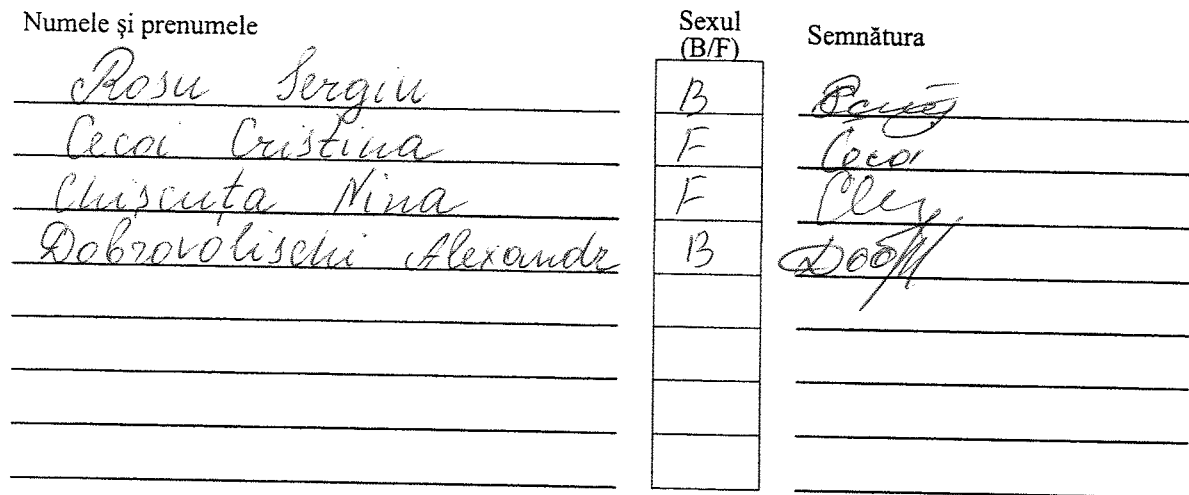 Numele și prenumele Sexul (B/F) Semnătura
Rosu Sergiu B
Cecoi Cristina F Cecoi
Chișcuța Nina F
Dobrovolischi Alexandr B